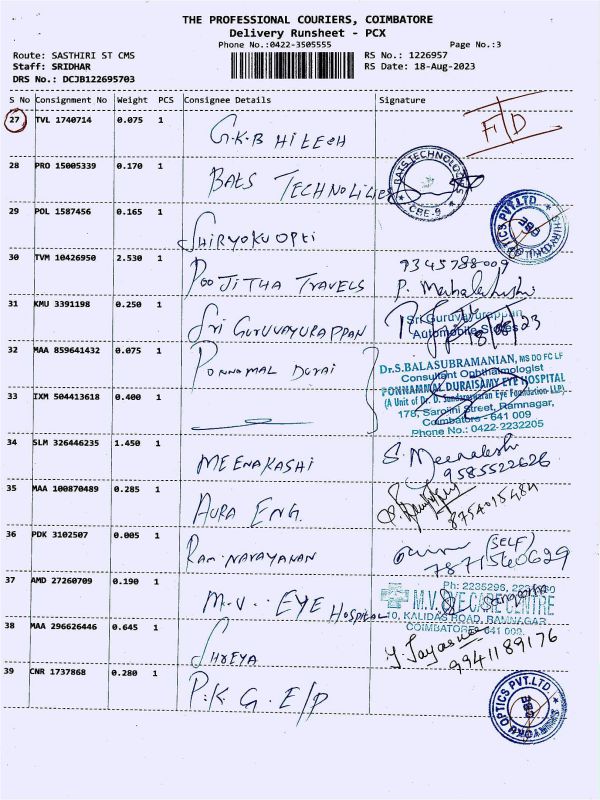 THE PROFESSIONAL COURIERS, COIMBATORE
Delivery Runsheet - PCX
Phone No.:0422-3505555
Page No.:3
Route: SASTHIRI ST CMS
RS No.: 1226957
Staff: SRIDHAR
RS Date: 18-Aug-2023
DRS No.: DCJB122695703
S No Consignment No Weight PCS Consignee Details Signature
27 TVL 1740714 0.075 1 G.K.B Hi tech F/D
28 PRO 15005339 0.170 1 BATS TECHNOLILIES
BATS TECHNOLOGIES
CBE-9
29 POL 1587456 0.165 1 SHIRYOKU OPTI
OPTICS PVT.LTD.
30 TVM 10426950 2.530 1 POOJITHA TRAVELS 9345788009
P. Mahalakshmi
31 KMU 3391198 0.250 1 Sri GURUVAYURAPPAN
Sri Guruvayurappan
Automobile
32 MAA 859641432 0.075 1 PONNAMAL DURAI
Dr.S.BALASUBRAMANIAN, MS DO FC LF
Consultant Ophthalmologist
PONNAMMAL DURAISAMY EYE HOSPITAL
(A Unit of Dr. D. Sundareswaran Eye Foundation-LLP)
178, Sarojini Street, Ramnagar,
Coimbatore - 641 009
Phone No.: 0422-2232205
33 IXM 504413618 0.400 1
34 SLM 326446235 1.450 1 MEENAKASHI S. Meenakshi
9585522626
35 MAA 100870489 0.285 1 AURA ENG.
8754015484
36 PDK 3102507 0.005 1 RAM NARAYANAN (SELF)
7871560629
37 AMD 27260709 0.190 1 M.V. EYE Hospital
Ph: 2235296,
M.V. EYE CARE CENTRE
10, KALIDAS ROAD, RAMNAGAR
COIMBATORE - 641 009.
38 MAA 296626446 0.645 1 SHREYA
9941189176
39 CNR 1737868 0.280 1 P.K G. E/P
OPTICS PVT.LTD.